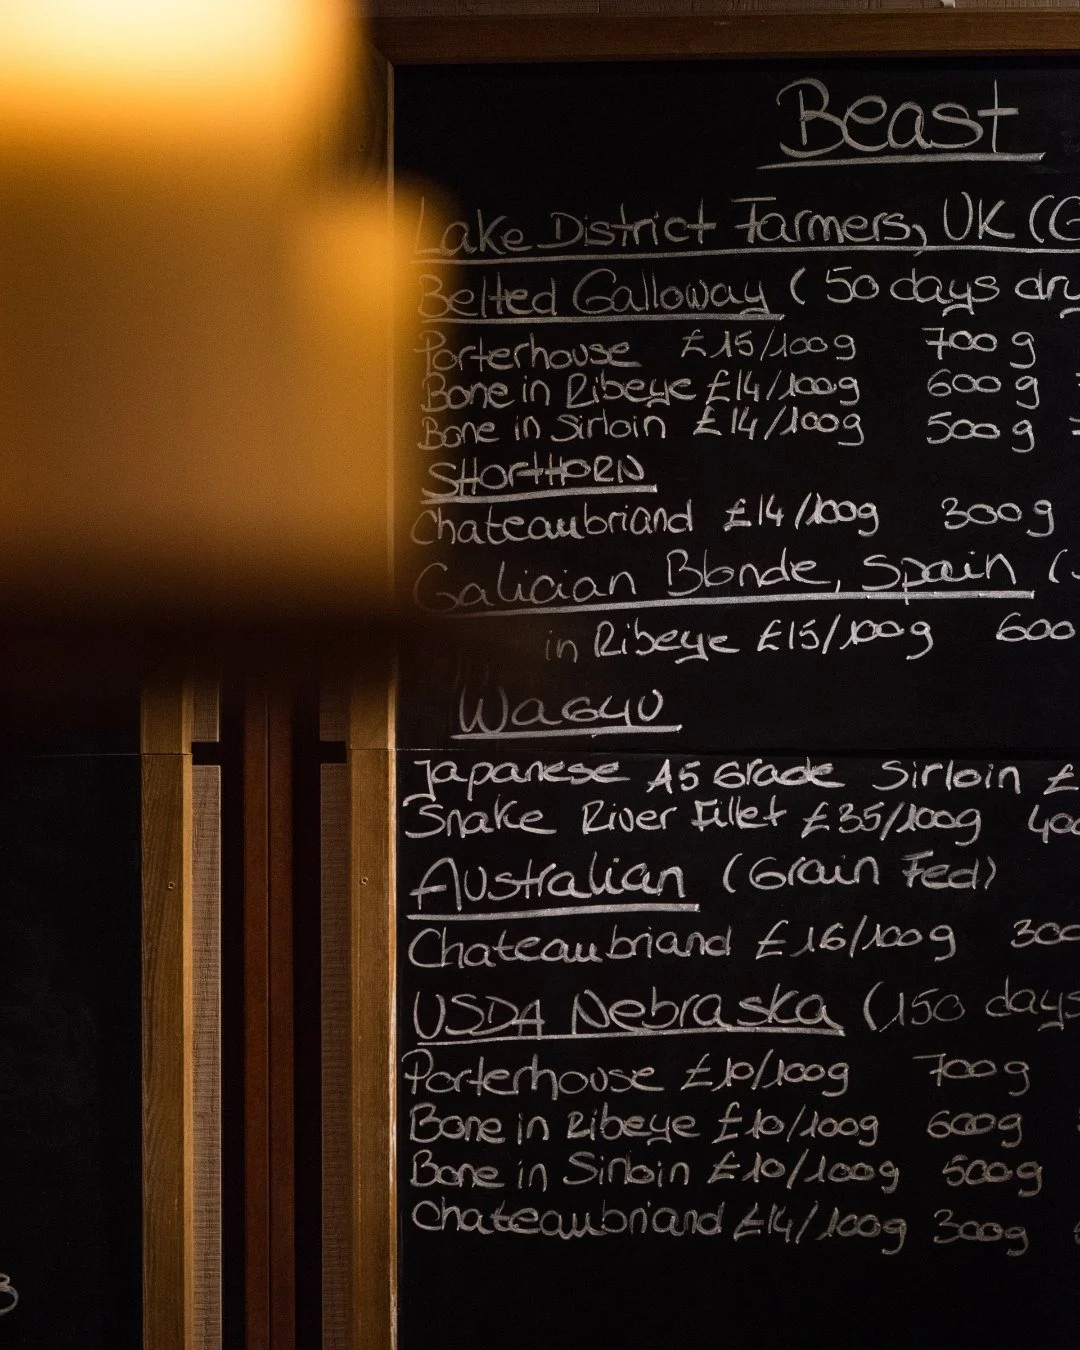 Beast
Lake District Farmers, UK (G
Belted Galloway (50 days dry
Porterhouse £15/100g 700g
Bone in Ribeye £14/100g 600g
Bone in Sirloin £14/100g 500g
SHORTHORN
Chateaubriand £14/100g 300g
Galician Blonde, Spain (
in Ribeye £15/100g 600
WAGYU
Japanese A5 Grade Sirloin £
Snake River Fillet £35/100g 400
Australian (Grain Fed)
Chateaubriand £16/100g 300
USDA Nebraska (150 days
Porterhouse £10/100g 700g
Bone in Ribeye £10/100g 600g
Bone in Sirloin £10/100g 500g
Chateaubriand £14/100g 300g